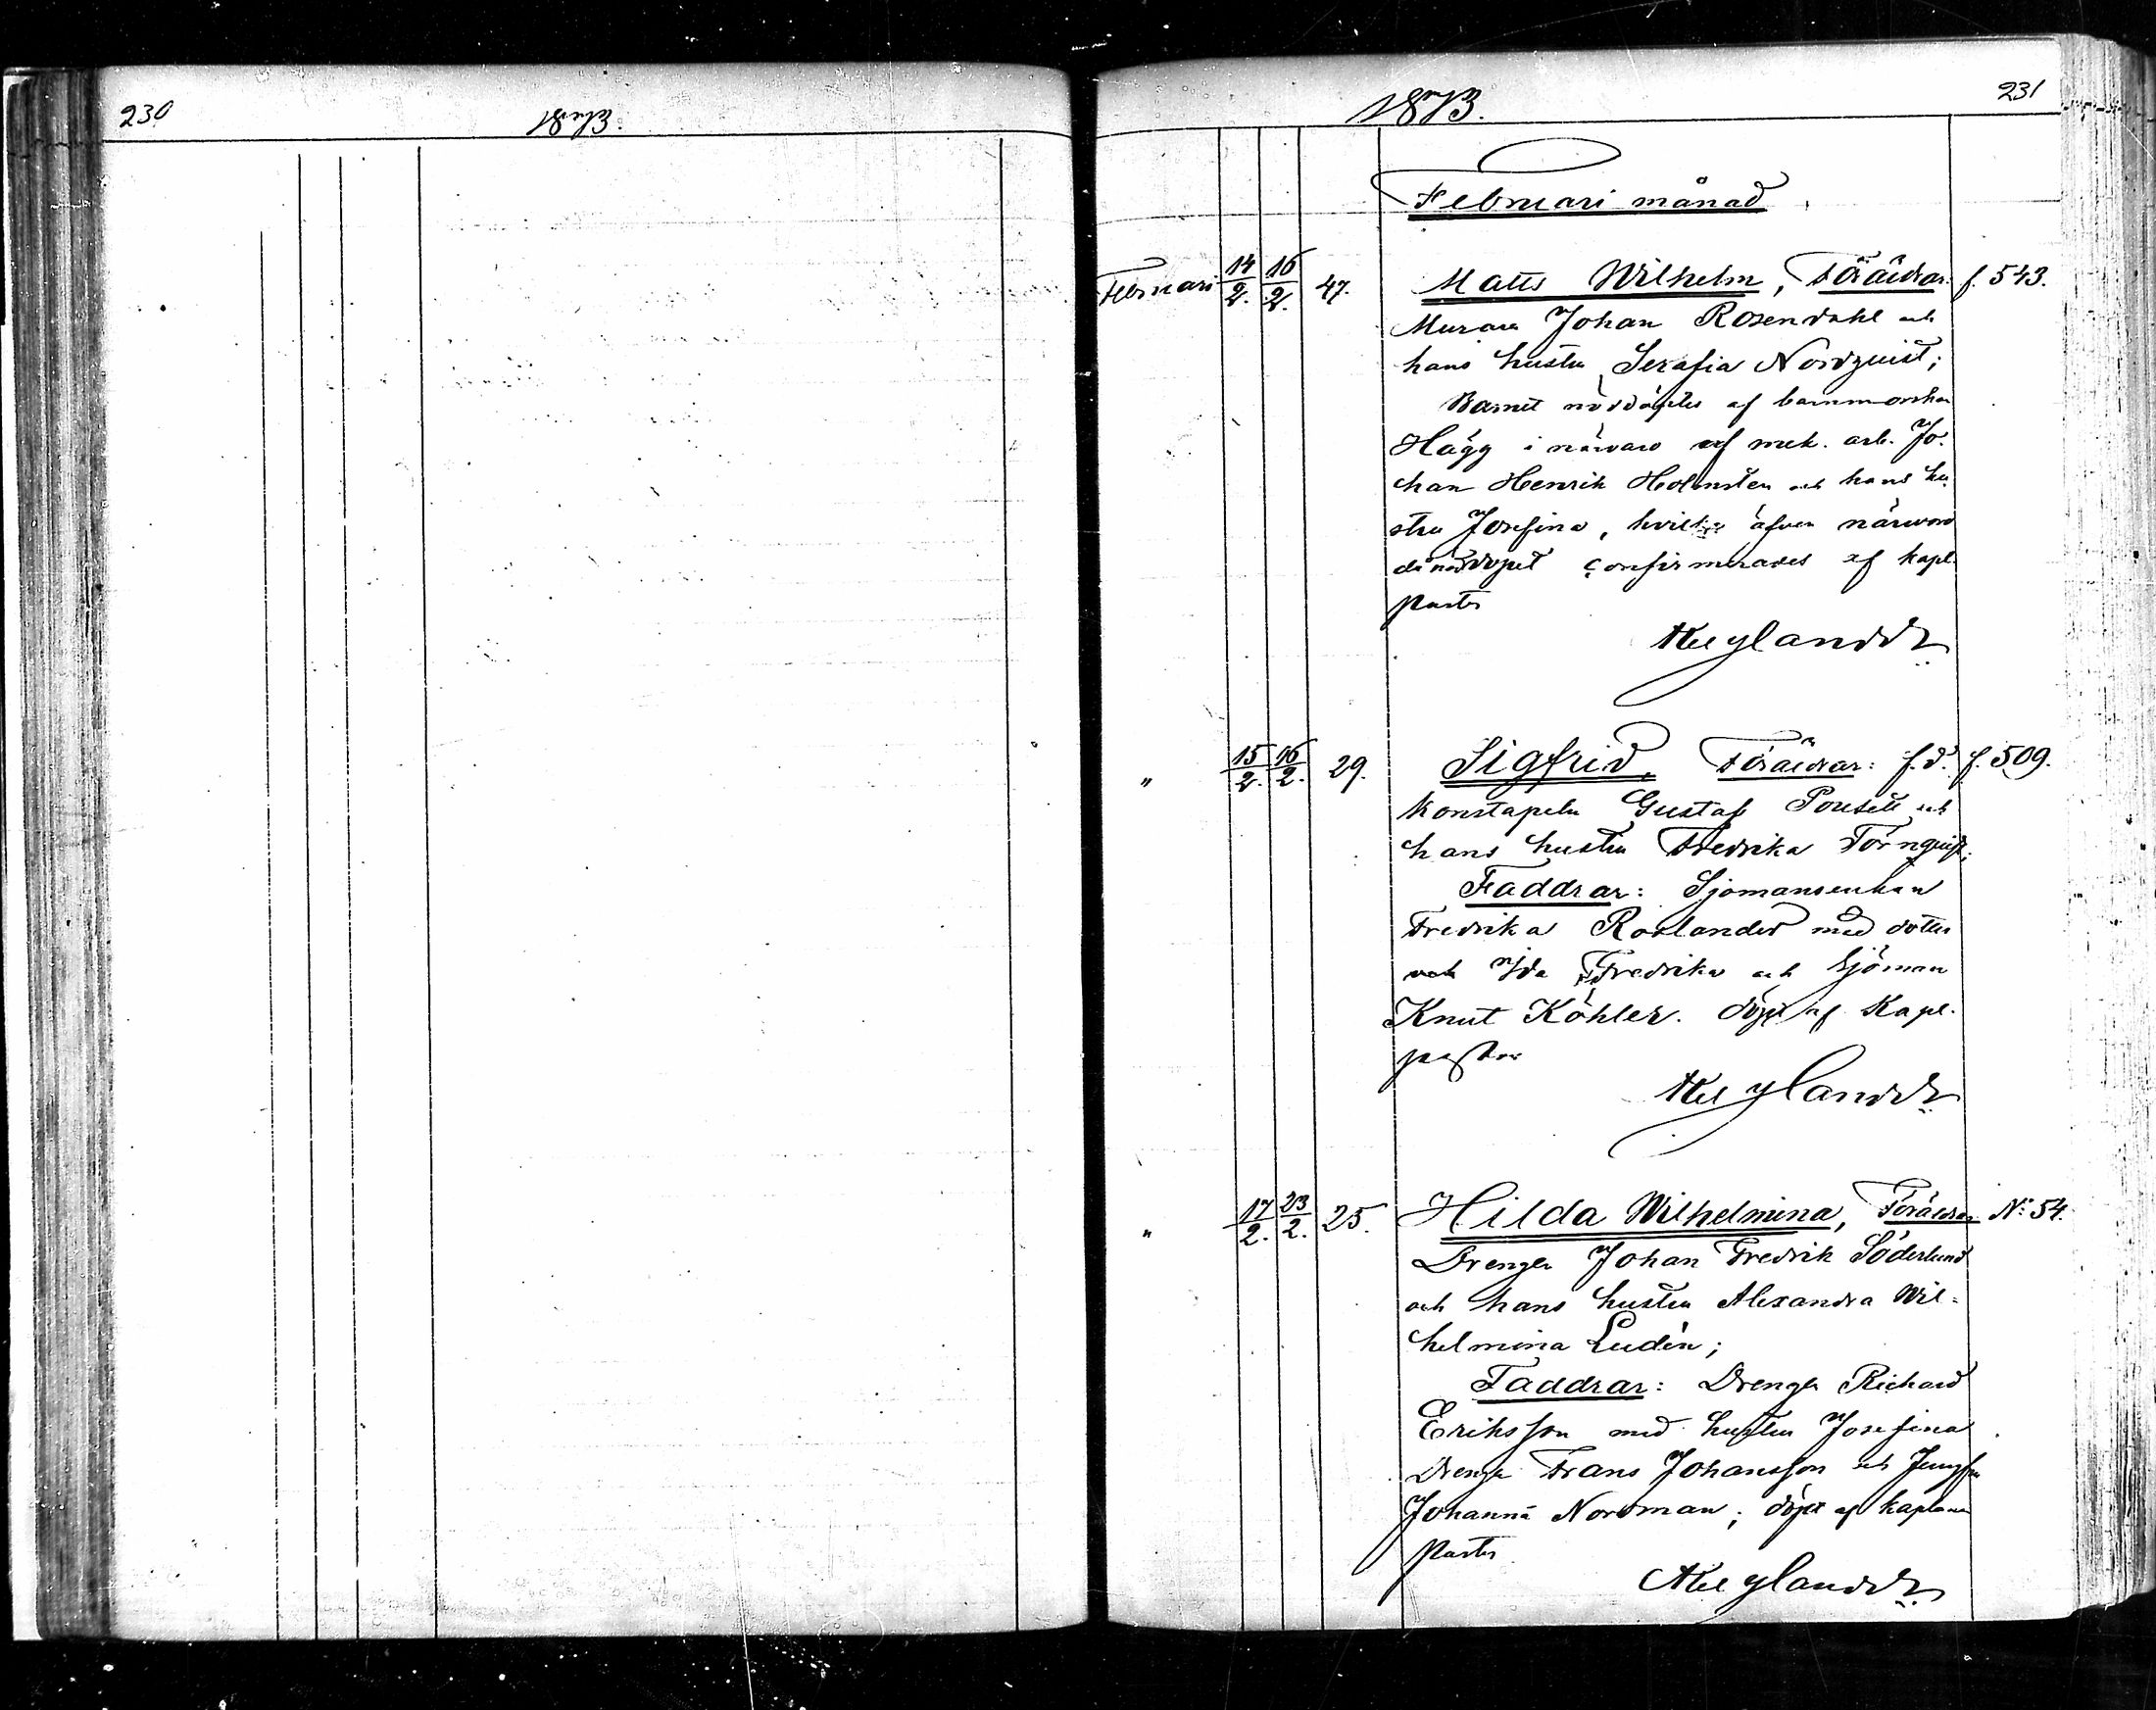 230
1873.
1873.
231
Februari månad
Februari 14/2. 16/2. 47. Matts Wilhelm, Föräldrar: f. 543.
Murare Johan Rosendahl och
hans hustru Serafia Nordquist;
Barnet nöddöptes af barnmorskan
Hägg i närvaro af mek. arb. Jo-
han Henrik Holmsten och hans hu
stru Josefina, hvilka äfven närvoro
då nöddopet confirmerades af kapl.
Pastor
Heylander
" 15/2. 16/2. 29. Sigfrid, Föräldrar: f.d. f. 509.
Konstapeln Gustaf Pousett och
hans hustru Fredrika Törnquist;
Faddrar: Sjömansenkan
Fredrika Roslander med dotter
Ida Fredrika och Sjöman
Knut Köhler. döpt af Kapl.
pastor
Heylander
" 17/2. 23/2. 25. Hilda Wilhelmina, Föräldrar N: 54.
Drengen Johan Fredrik Söderlund
och hans hustru Alexandra Wil-
helmina Ludén;
Faddrar: Drengen Richard
Eriksson med hustru Josefina
Drengen Frans Johansson och Jungfru
Johanna Nordman; döpt af kaplans
Pastor
Heylander